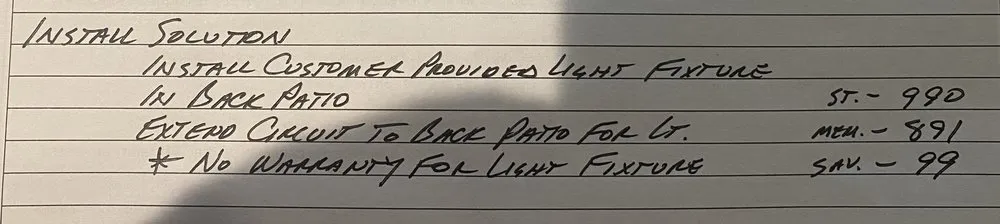 INSTALL SOLUTION
INSTALL CUSTOMER PROVIDED LIGHT FIXTURE
IN BACK PATIO ST. - 990
EXTEND CIRCUIT TO BACK PATIO FOR LT. MEM. - 891
* NO WARRANTY FOR LIGHT FIXTURE SAV. - 99